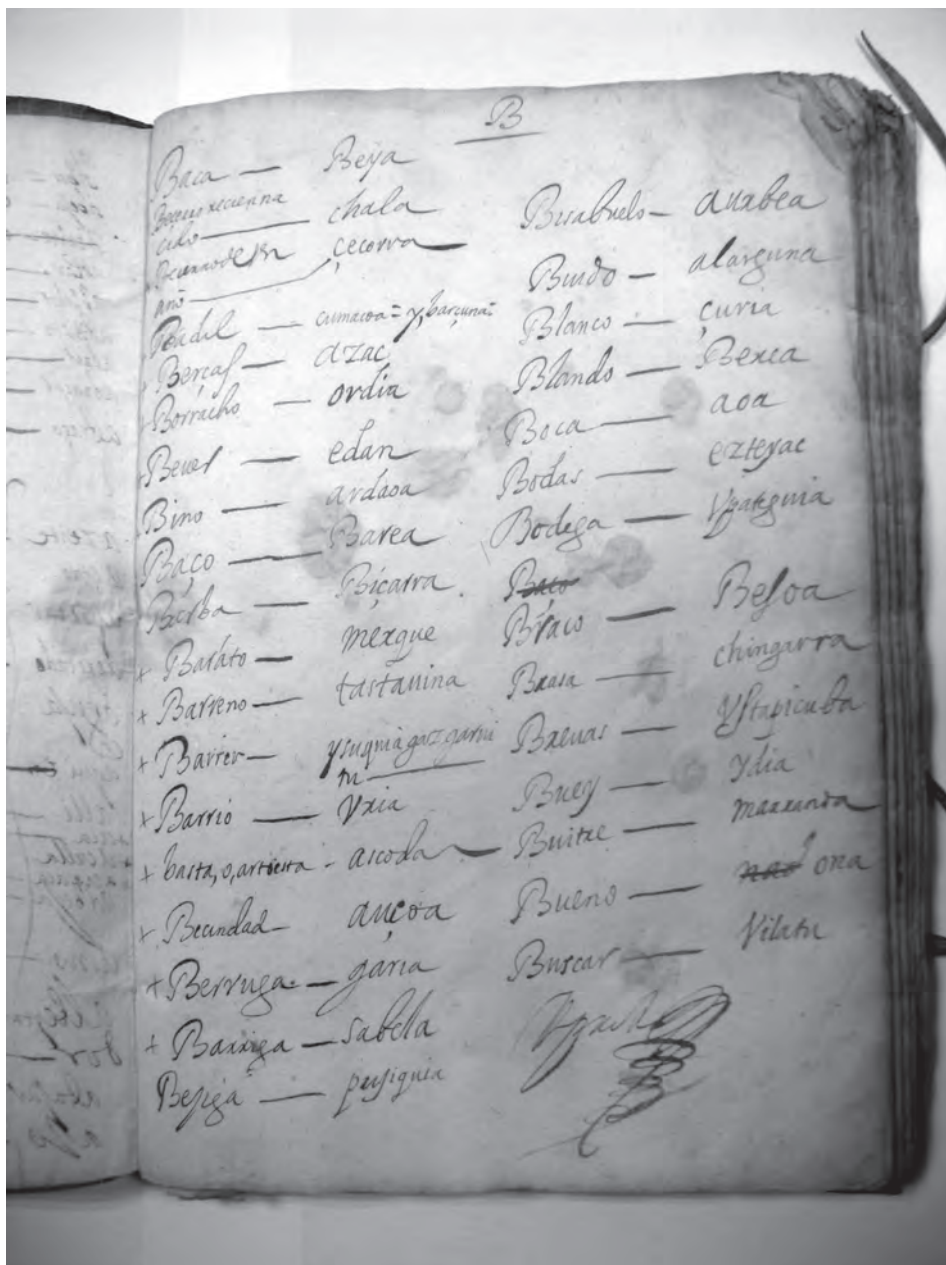 B
Baca — Beya
Becerro recienna
cido — chala
Becerro de Un
año — çecorra
Badil — cumacoa = y, barçuna =
+ Berças — azac
+ Borracho — ordia
+ Bever — edan
+ Bino — ardaoa
Baço — Barea
Barba — Biçarra
+ Barato — merque
+ Barreno — tastavina
+ Barrer — ysuquia gaz garvi
tu
+ Barrio — Yria
+ basta, o, artesa - ascoda
+ Becindad — auçoa
+ Berruga — garia
+ Barriga — sabella
Besiga — pusiquia
Bisabuelo — aurabea
Biudo — alarguna
Blanco — çuria
Blando — Berca
Boca — aoa
Bodas — ezteyac
Bodega — Upateguia
Baco
Braço — Besoa
Brasa — chingarra
Brevas — Ystapicuba
Buey — Ydia
Buitre — marranoa
Bueno — ona
Buscar — Vilatu